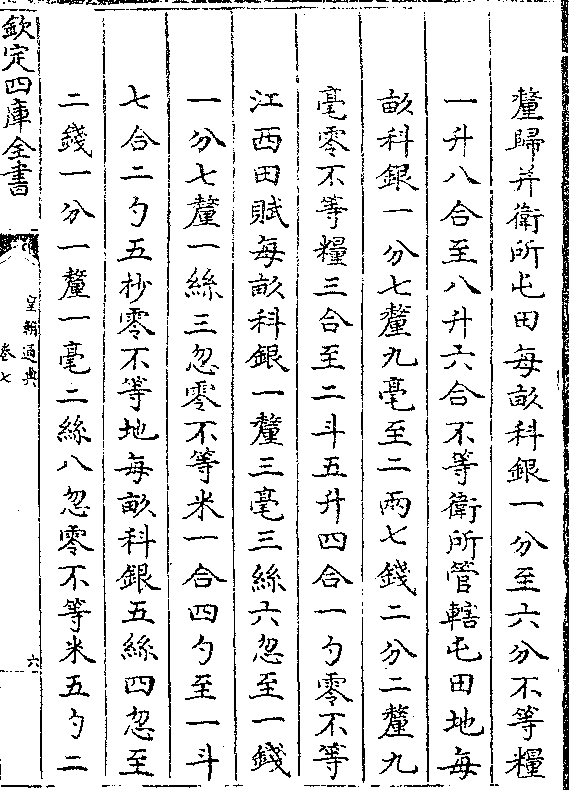 釐歸并衛所屯田每畝科銀一分至六分不等糧
一升八合至八升六合不等衛所管轄屯田地每
畝科銀一分七釐九毫至二兩七錢二分二釐九
毫零不等糧三合至二斗五升四合一勺零不等
江西田賦每畝科銀一釐三毫三絲六忽至一錢
一分七釐一絲三忽零不等米一合四勺至一斗
七合二勺五杪零不等地每畝科銀五絲四忽至
二錢一分一釐一毫二絲八忽零不等米五勺二
欽定四庫全書
皇朝通典
卷七
六